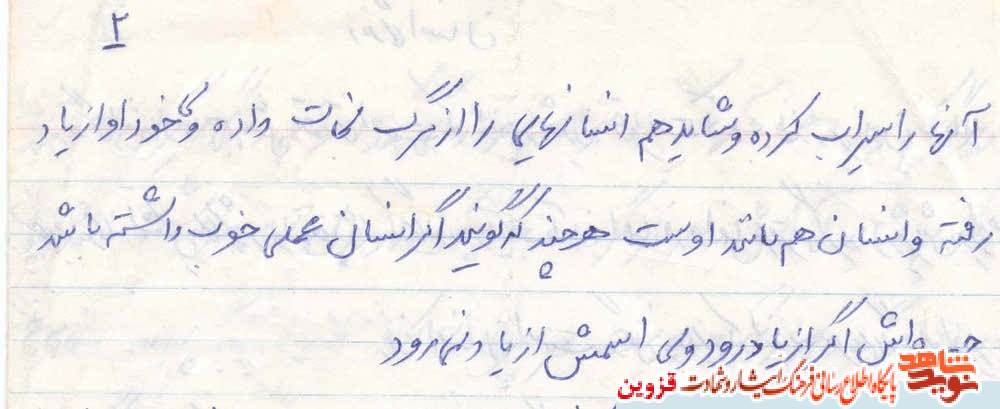 ۲
آنها را سیراب کرده و شاید هم انسانهایی را از مرگ نجات داده ولی خود او از یاد
رفته و انسان هم مانند اوست هر چند که گویند اگر انسان عملی خوب داشته باشد
اش اگر از یاد رود ولی اسمش از یاد نمی رود
نوید شاهد
پایگاه اطلاع رسانی فرهنگ ایثار و شهادت قزوین